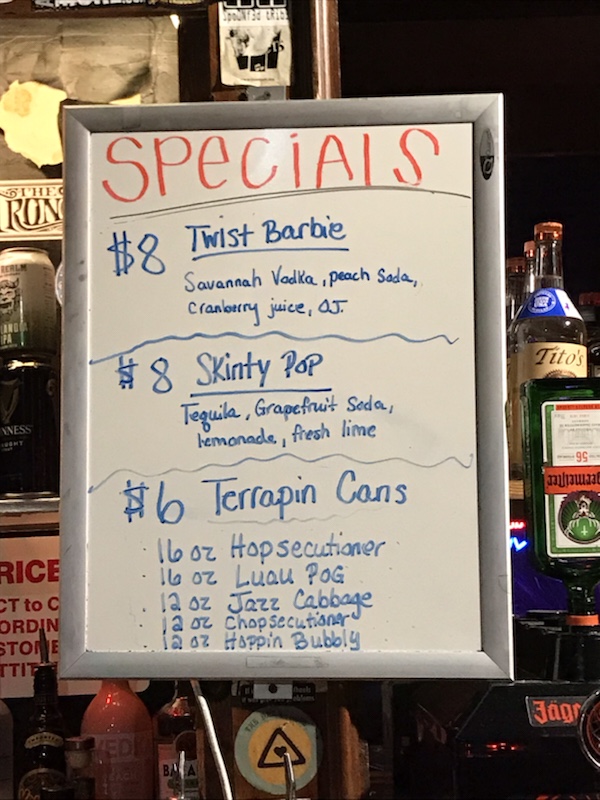 SPECIALS
$8 Twist Barbie
Savannah Vodka, peach Soda,
Cranberry juice, OJ.
$8 Skinty Pop
Tequila, Grapefruit Soda,
lemonade, fresh lime
$6 Terrapin Cans
16 oz Hopsecutioner
16 oz Luau POG
12 oz Jazz Cabbage
12 oz Chopsecutioner
12 oz Hoppin Bubbly
THE
IRON
Tito's
56
Jäg
RICE
CT to C
ORDIN
STOME
TTIT